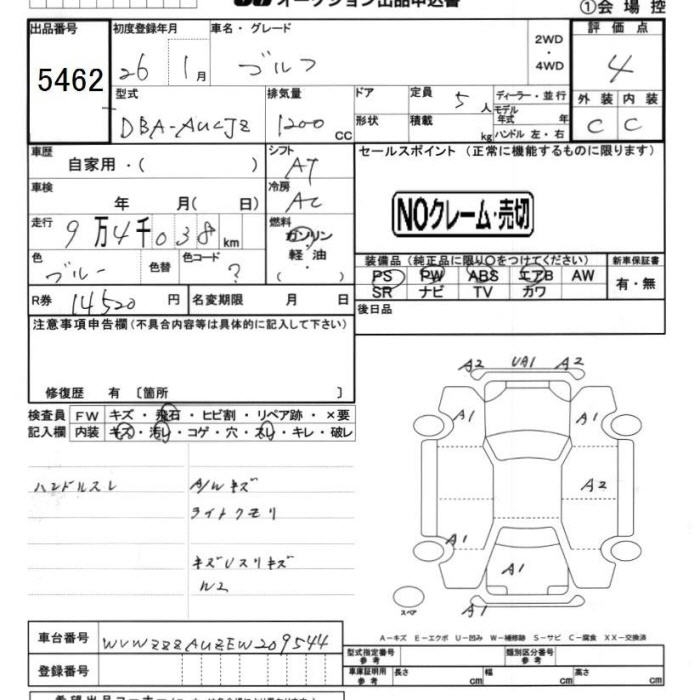 オークション出品申込書
①会場控
出品番号 初度登録年月 車名・グレード 2WD・4WD 評価点
5462 26 1月 ゴルフ 4
型式 排気量 ドア 定員 5人 ディーラー・並行 外装 内装
DBA-AUCJZ 1200 CC 形状 積載 kg モデル年式 年 ハンドル 左・右 C C
車歴 自家用・( ) シフト AT セールスポイント (正常に機能するものに限ります)
車検 年 月( 日) 冷房 AC
NOクレーム・売切
走行 9万4千038km 燃料 ガソリン 軽油 ( )
色 ブルー 色替 色コード ?
装備品 (純正品に限り○をつけてください) 新車保証書
PS PW ABS エアB AW 有・無
SR ナビ TV カワ
R券 14520円 名変期限 月 日 後日品
注意事項申告欄(不具合内容等は具体的に記入して下さい)
修復歴 有 〔箇所 〕
検査員 FW キズ・飛石・ヒビ割・リペア跡・×要
記入欄 内装 キズ・汚レ・コゲ・穴・スレ・キレ・破レ
A2 UA1 A2
A1 A1
A2
A1
A1
A1
スペア
ハンドルスレ A/Wキズ
ライトクモリ
キズUスリキズ
W2
A-キズ E-エクボ U-凹み W-補修跡 S-サビ C-腐食 XX-交換済
車台番号 WVWZZZAUZEW209544
型式指定番号 参考 類別区分番号 参考
登録番号 車庫証明用 参考 長さ cm 幅 cm 高さ cm